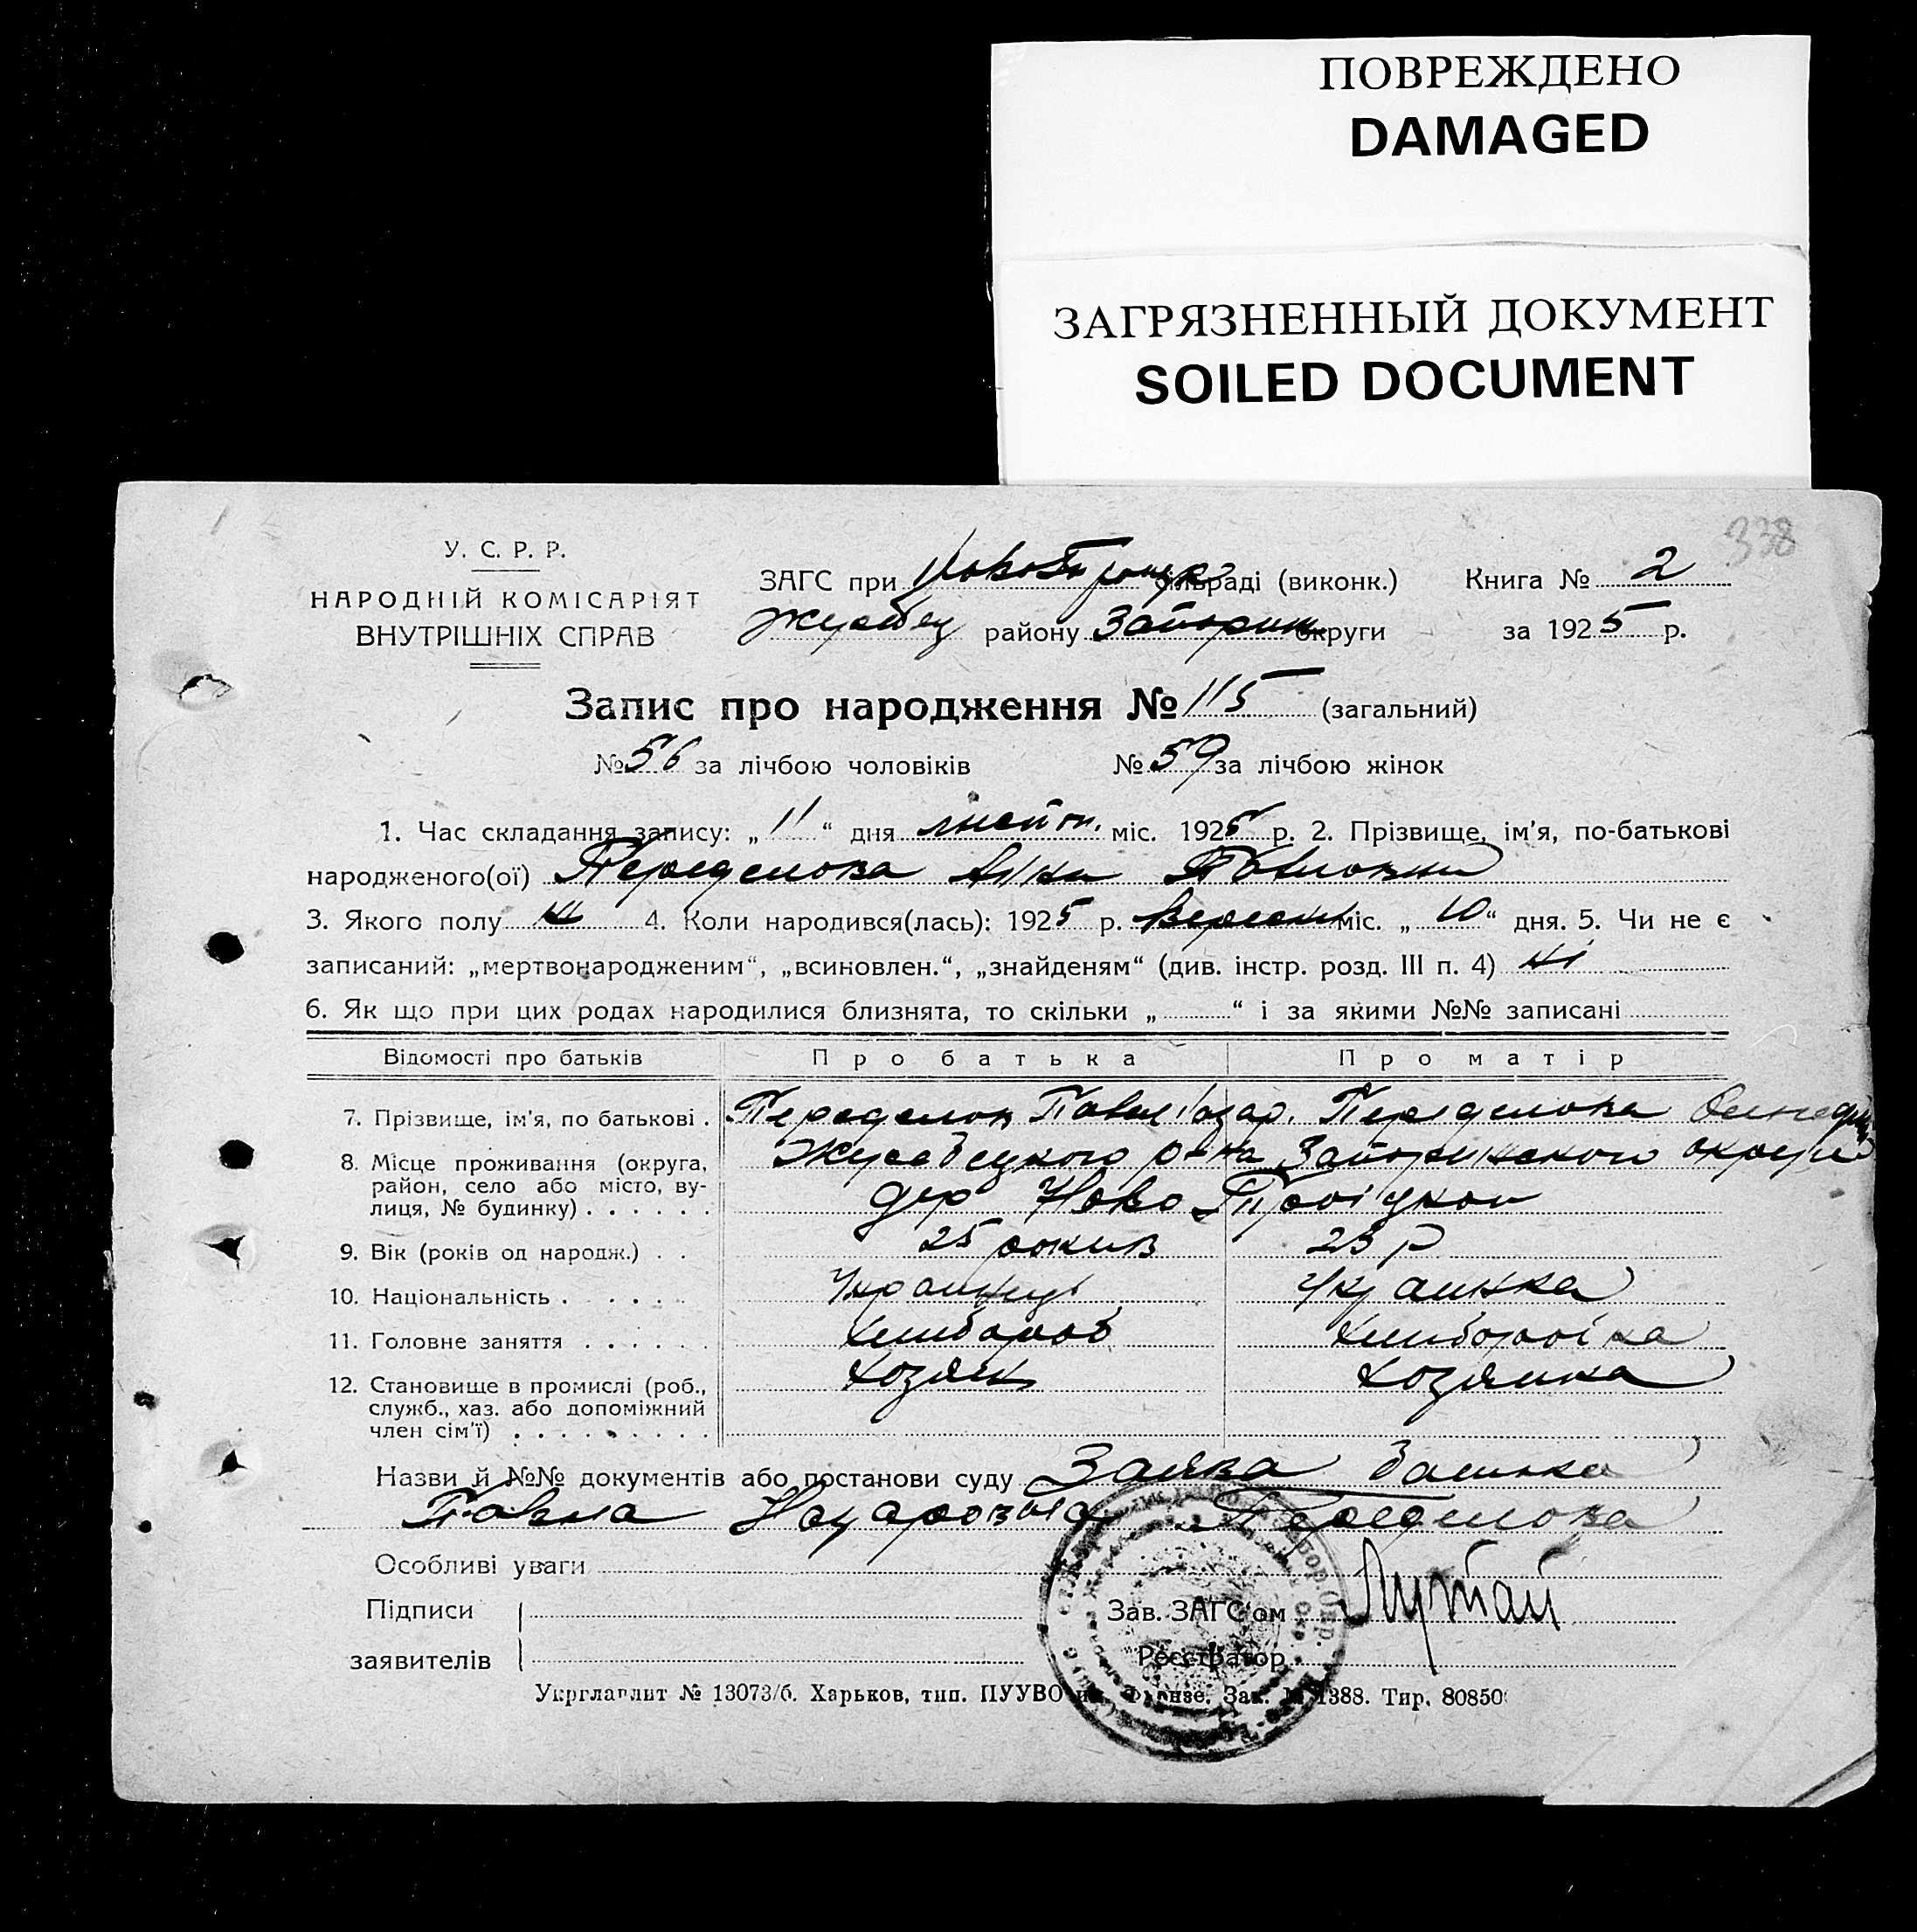 ПОВРЕЖДЕНО
DAMAGED
ЗАГРЯЗНЕННЫЙ ДОКУМЕНТ
SOILED DOCUMENT
338
У. С. Р. Р.
НАРОДНІЙ КОМІСАРІЯТ
ВНУТРІШНІХ СПРАВ
ЗАГС при сільраді (виконк.) Книга № 2
району Запориж округи за 1925 р.
Запис про народження № 115 (загальний)
№ 56 за лічбою чоловіків № 59 за лічбою жінок
1. Час складання запису: „11“ дня листоп. міс. 1925 р. 2. Прізвище, ім'я, по-батькові
народженого(ої) Переделова Анна Павловна
3. Якого полу 4. Коли народився(лась): 1925 р. вересня міс. „10“ дня. 5. Чи не є
записаний: „мертвонародженим“, „всиновлен.“, „знайденям“ (див. інстр. розд. III п. 4) ні
6. Як що при цих родах народилися близнята, то скільки „ “ і за якими №№ записані
Відомості про батьків Про батька Про матір
7. Прізвище, ім'я, по батькові . Переделов Павел Назар. Переделова
8. Місце проживання (округа, Жеребецкого р-на Запорижского округи
район, село або місто, ву- дер Ново
лиця, № будинку) . . . . . .
9. Вік (років од народж.) . . 25 рокив 23 р
10. Національність . . . . . . Украинць Украинка
11. Головне заняття . . . . . . хлибороб хлиборобка
12. Становище в промислі (роб., хозяин хозяика
служб., хаз. або допоміжний
член сім'ї) . . . . . . . . .
Назви й №№ документів або постанови суду Заява батька
Павла Назаровича Переделова
Особливі уваги
Підписи Зав. ЗАГС'ом Лутай
заявителів Реєстратор
Укрглавлит № 13073/б. Харьков, тип. ПУУВО им. Фрунзе. Зак. № 1388. Тир. 80850